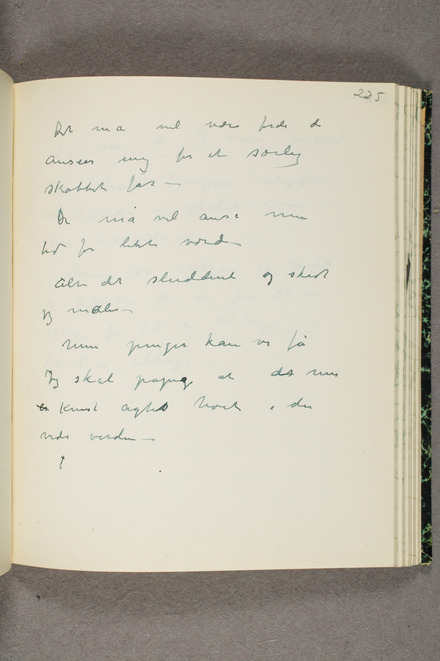 225
Det må vel være fordi de
ansees mig for et særlig
skabbet får —
De må vel anse min
tid for liten værd —
Alt det sludderet og skidt
jeg maler —
Min penger kan vi få
Jeg skal påpege at det min
kunst agtes høit i den
vide verden —